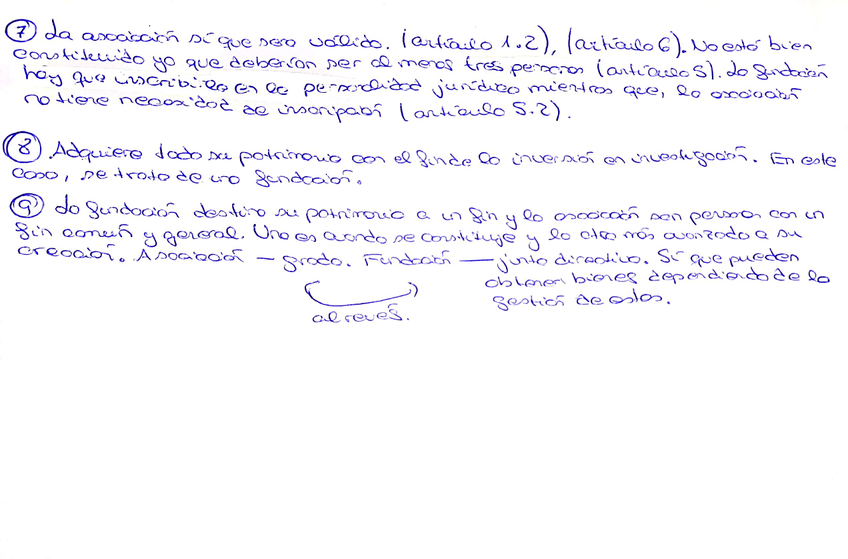 7 La asociación sí que sera válido. (artículo 1.2), (artículo 6). No está bien
constituido ya que deberían ser al menos tres personas (artículo 5). La fundación
hay que inscribirla en la personalidad jurídica mientras que, la asociación
no tiene necesidad de inscripción (artículo 5.2).
8 Adquiere todo su patrimonio con el fin de la inversión en investigación. En este
caso, se trata de una fundación.
9 La fundación destina su patrimonio a un fin y la asociación son personas con un
fin común y general. Una es cuando se constituye y la otra más avanzado a su
creación. Asociación — grado. Fundación — junta directiva. Sí que pueden
obtener bienes dependiendo de la
gestión de estos.
al revés.